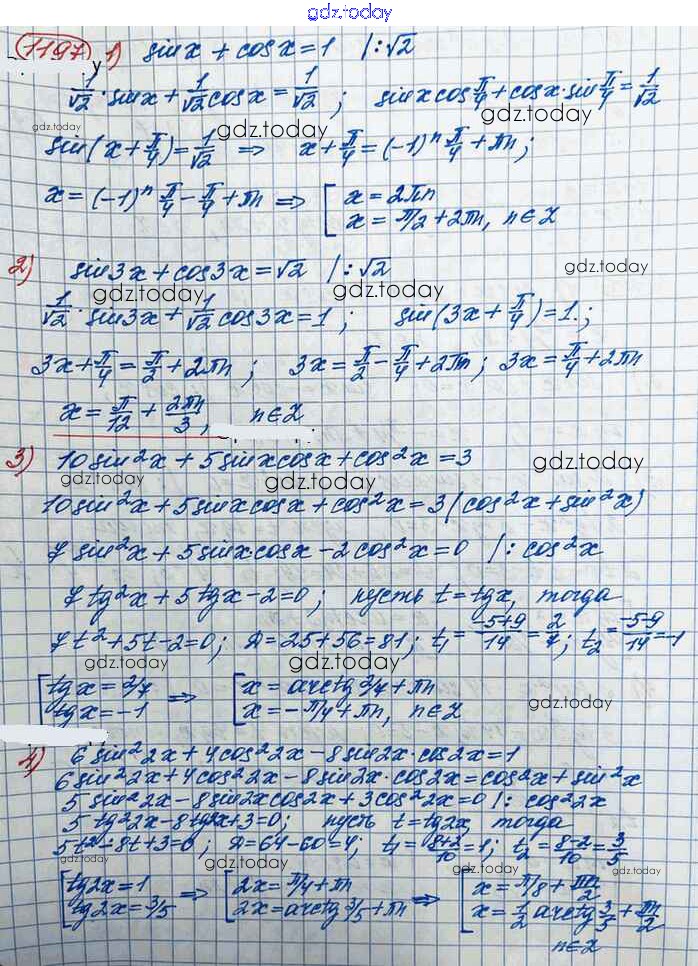 gdz.today
1197 1) sin x + cos x = 1 |:√2
1/√2 · sin x + 1/√2 cos x = 1/√2; sin x cos π/4 + cos x · sin π/4 = 1/√2
gdz.today gdz.today
sin(x + π/4) = 1/√2 ⇒ x + π/4 = (-1)ⁿ π/4 + πn;
x = (-1)ⁿ π/4 - π/4 + πn ⇒ [ x = 2πn
x = π/2 + 2πn, n ∈ Z
gdz.today gdz.today
2) sin3x + cos3x = √2 |:√2
gdz.today gdz.today
1/√2 · sin3x + 1/√2 cos3x = 1; sin(3x + π/4) = 1.;
gdz.today gdz.today
3x + π/4 = π/2 + 2πn; 3x = π/2 - π/4 + 2πn; 3x = π/4 + 2πn
x = π/12 + 2πn/3, n ∈ Z
3) 10 sin²x + 5 sin x cos x + cos²x = 3
gdz.today gdz.today
10 sin²x + 5 sin x cos x + cos²x = 3(cos²x + sin²x)
gdz.today
7 sin²x + 5 sin x · cos x - 2 cos²x = 0 |: cos²x
7 tg²x + 5 tg x - 2 = 0; пусть t = tg x, тогда
gdz.today
7t² + 5t - 2 = 0; D = 25 + 56 = 81; t₁ = -5+9/14 = 2/7; t₂ = -5-9/14 = -1
gdz.today gdz.today
[ tg x = 2/7 ⇒ [ x = arctg 2/7 + πn
tg x = -1 x = -π/4 + πn, n ∈ Z
gdz.today
4) 6 sin²2x + 4 cos²2x - 8 sin2x · cos2x = 1
6 sin²2x + 4 cos²2x - 8 sin2x · cos2x = cos²x + sin²x
5 sin²2x - 8 sin2x cos2x + 3 cos²2x = 0 |: cos²2x
5 tg²2x - 8 tg2x + 3 = 0; пусть t = tg2x, тогда
5t² - 8t + 3 = 0; D = 64 - 60 = 4; t₁ = 8+2/10 = 1; t₂ = 8-2/10 = 3/5
gdz.today gdz.today gdz.today
[ tg2x = 1 ⇒ [ 2x = π/4 + πn ⇒ [ x = π/8 + πn/2
tg2x = 3/5 2x = arctg 3/5 + πn x = 1/2 arctg 3/5 + πn/2
n ∈ Z